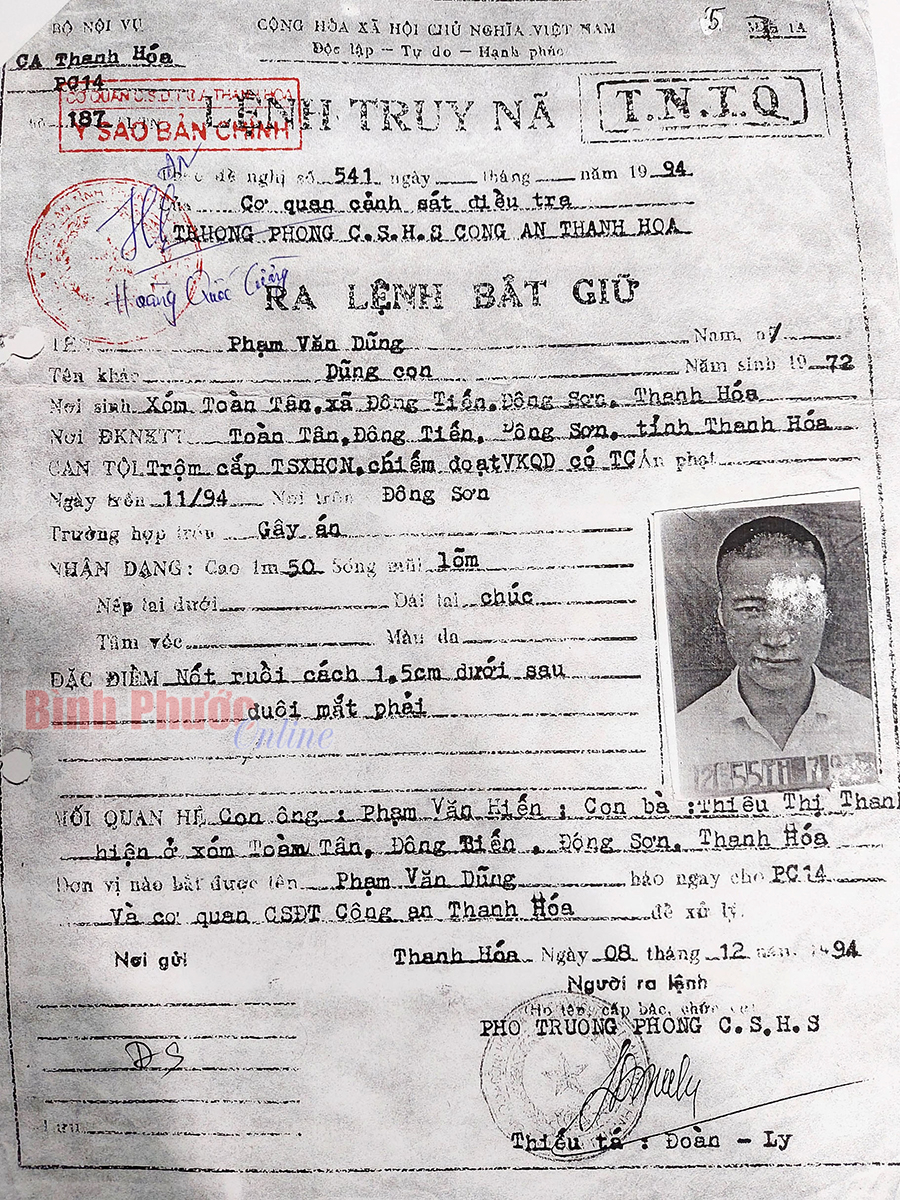 BỘ NỘI VỤ
CỘNG HÒA XÃ HỘI CHỦ NGHĨA VIỆT NAM
Độc lập - Tự do - Hạnh phúc
5
1A
CA Thanh Hóa
PC14
187
CƠ QUAN C.S.Đ.T C.A THANH HÓA
Y SAO BẢN CHÍNH
LỆNH TRUY NÃ
T.N.T.Q
đề nghị số 541 ngày tháng năm 1994
Của Cơ quan cảnh sát điều tra
TRUONG PHONG C.S.H.S CONG AN THANH HOA
Hoàng Quốc
RA LỆNH BẮT GIỮ
TÊN Phạm Văn Dũng Nam,
Tên khác Dũng con Năm sinh 1972
Nơi sinh Xóm Toàn Tân.xã Đông Tiến.Đông Sơn. Thanh Hóa
Nơi ĐKNKTT Toàn Tân.Đông Tiến. Đông Sơn. tỉnh Thanh Hóa
CAN TỘI Trộm cắp TSXHCN.chiếm đoạtVKQD có TC Án phạt
Ngày trốn 11/94 Nơi trốn Đông Sơn
Trường hợp trốn Gây án
NHẬN DẠNG: Cao 1m 50 Sống mũi lõm
Nếp tai dưới Dái tai chúc
Tầm vóc Màu da
ĐẶC ĐIỂM Nốt ruồi cách 1.5cm dưới sau
đuôi mắt phải
Bình Phước
Online
MỐI QUAN HỆ Con ông : Phạm Văn Hiến ; Con bà :Thiều Thị Thanh
hiện ở xóm Toàn Tân. Đông Tiến . Đông Sơn. Thanh Hóa
Đơn vị nào bắt được tên Phạm Văn Dũng báo ngay cho PC14
Và cơ quan CSĐT Công an Thanh Hóa để xử lý.
Nơi gửi
Thanh Hóa Ngày 08 tháng 12 năm 1994
Người ra lệnh
(Họ tên, cấp bậc, chức vụ)
PHO TRUONG PHONG C.S.H.S
ĐS
Lưu
Thiếu tá : Đoàn - Ly